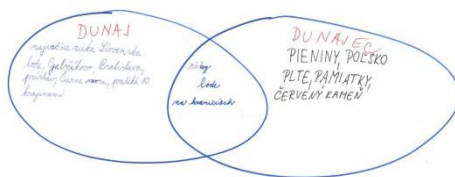 DUNAJ
najväčšia rieka Slovenska
lode, Gabčíkovo, Bratislava,
prístav, Čierne more, preteká 10
krajinami
rieky
lode
na hraniciach
DUNAJEC
PIENINY, POĽSKO
PLTE, PAMIATKY,
ČERVENÝ KAMEŇ